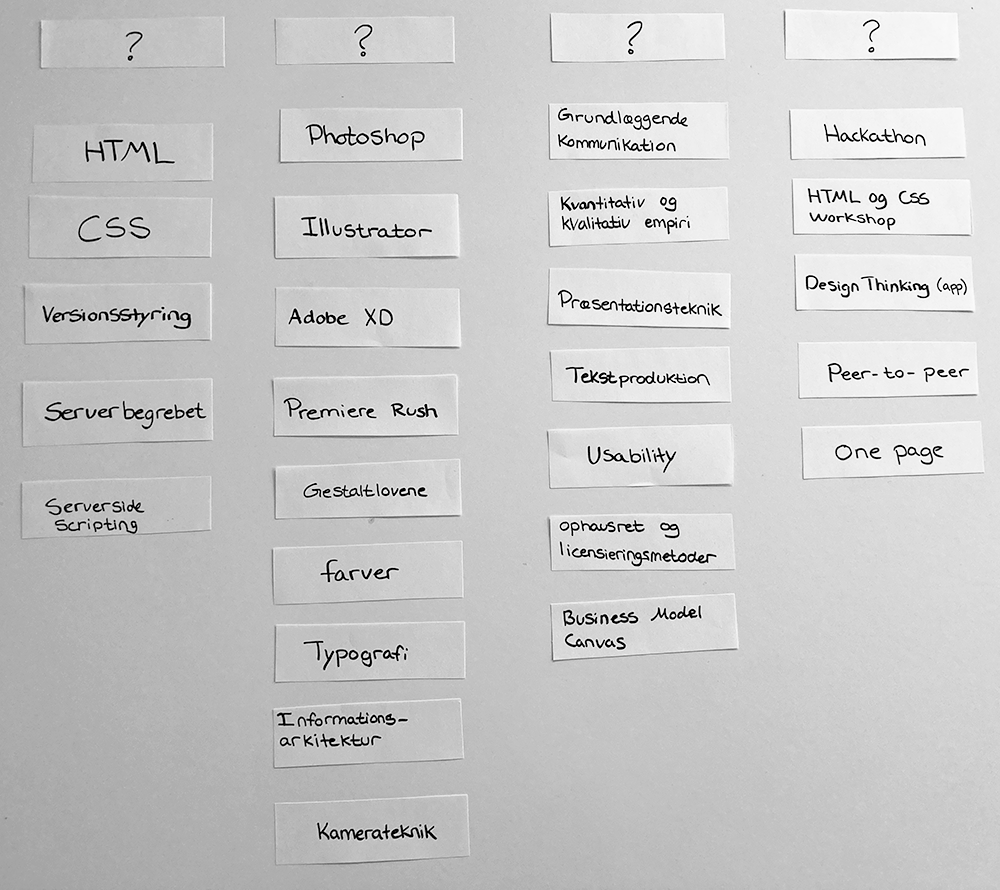 ?
HTML
CSS
Versionsstyring
Serverbegrebet
Serverside
Scripting
?
Photoshop
Illustrator
Adobe XD
Premiere Rush
Gestaltlovene
farver
Typografi
Informations-
arkitektur
Kamerateknik
?
Grundlæggende
Kommunikation
Kvantitativ og
kvalitativ empiri
Præsentationsteknik
Tekstproduktion
Usability
ophausret og
licensieringsmetoder
Business Model
Canvas
?
Hackathon
HTML og CSS
Workshop
Design Thinking (app)
Peer-to-peer
One page